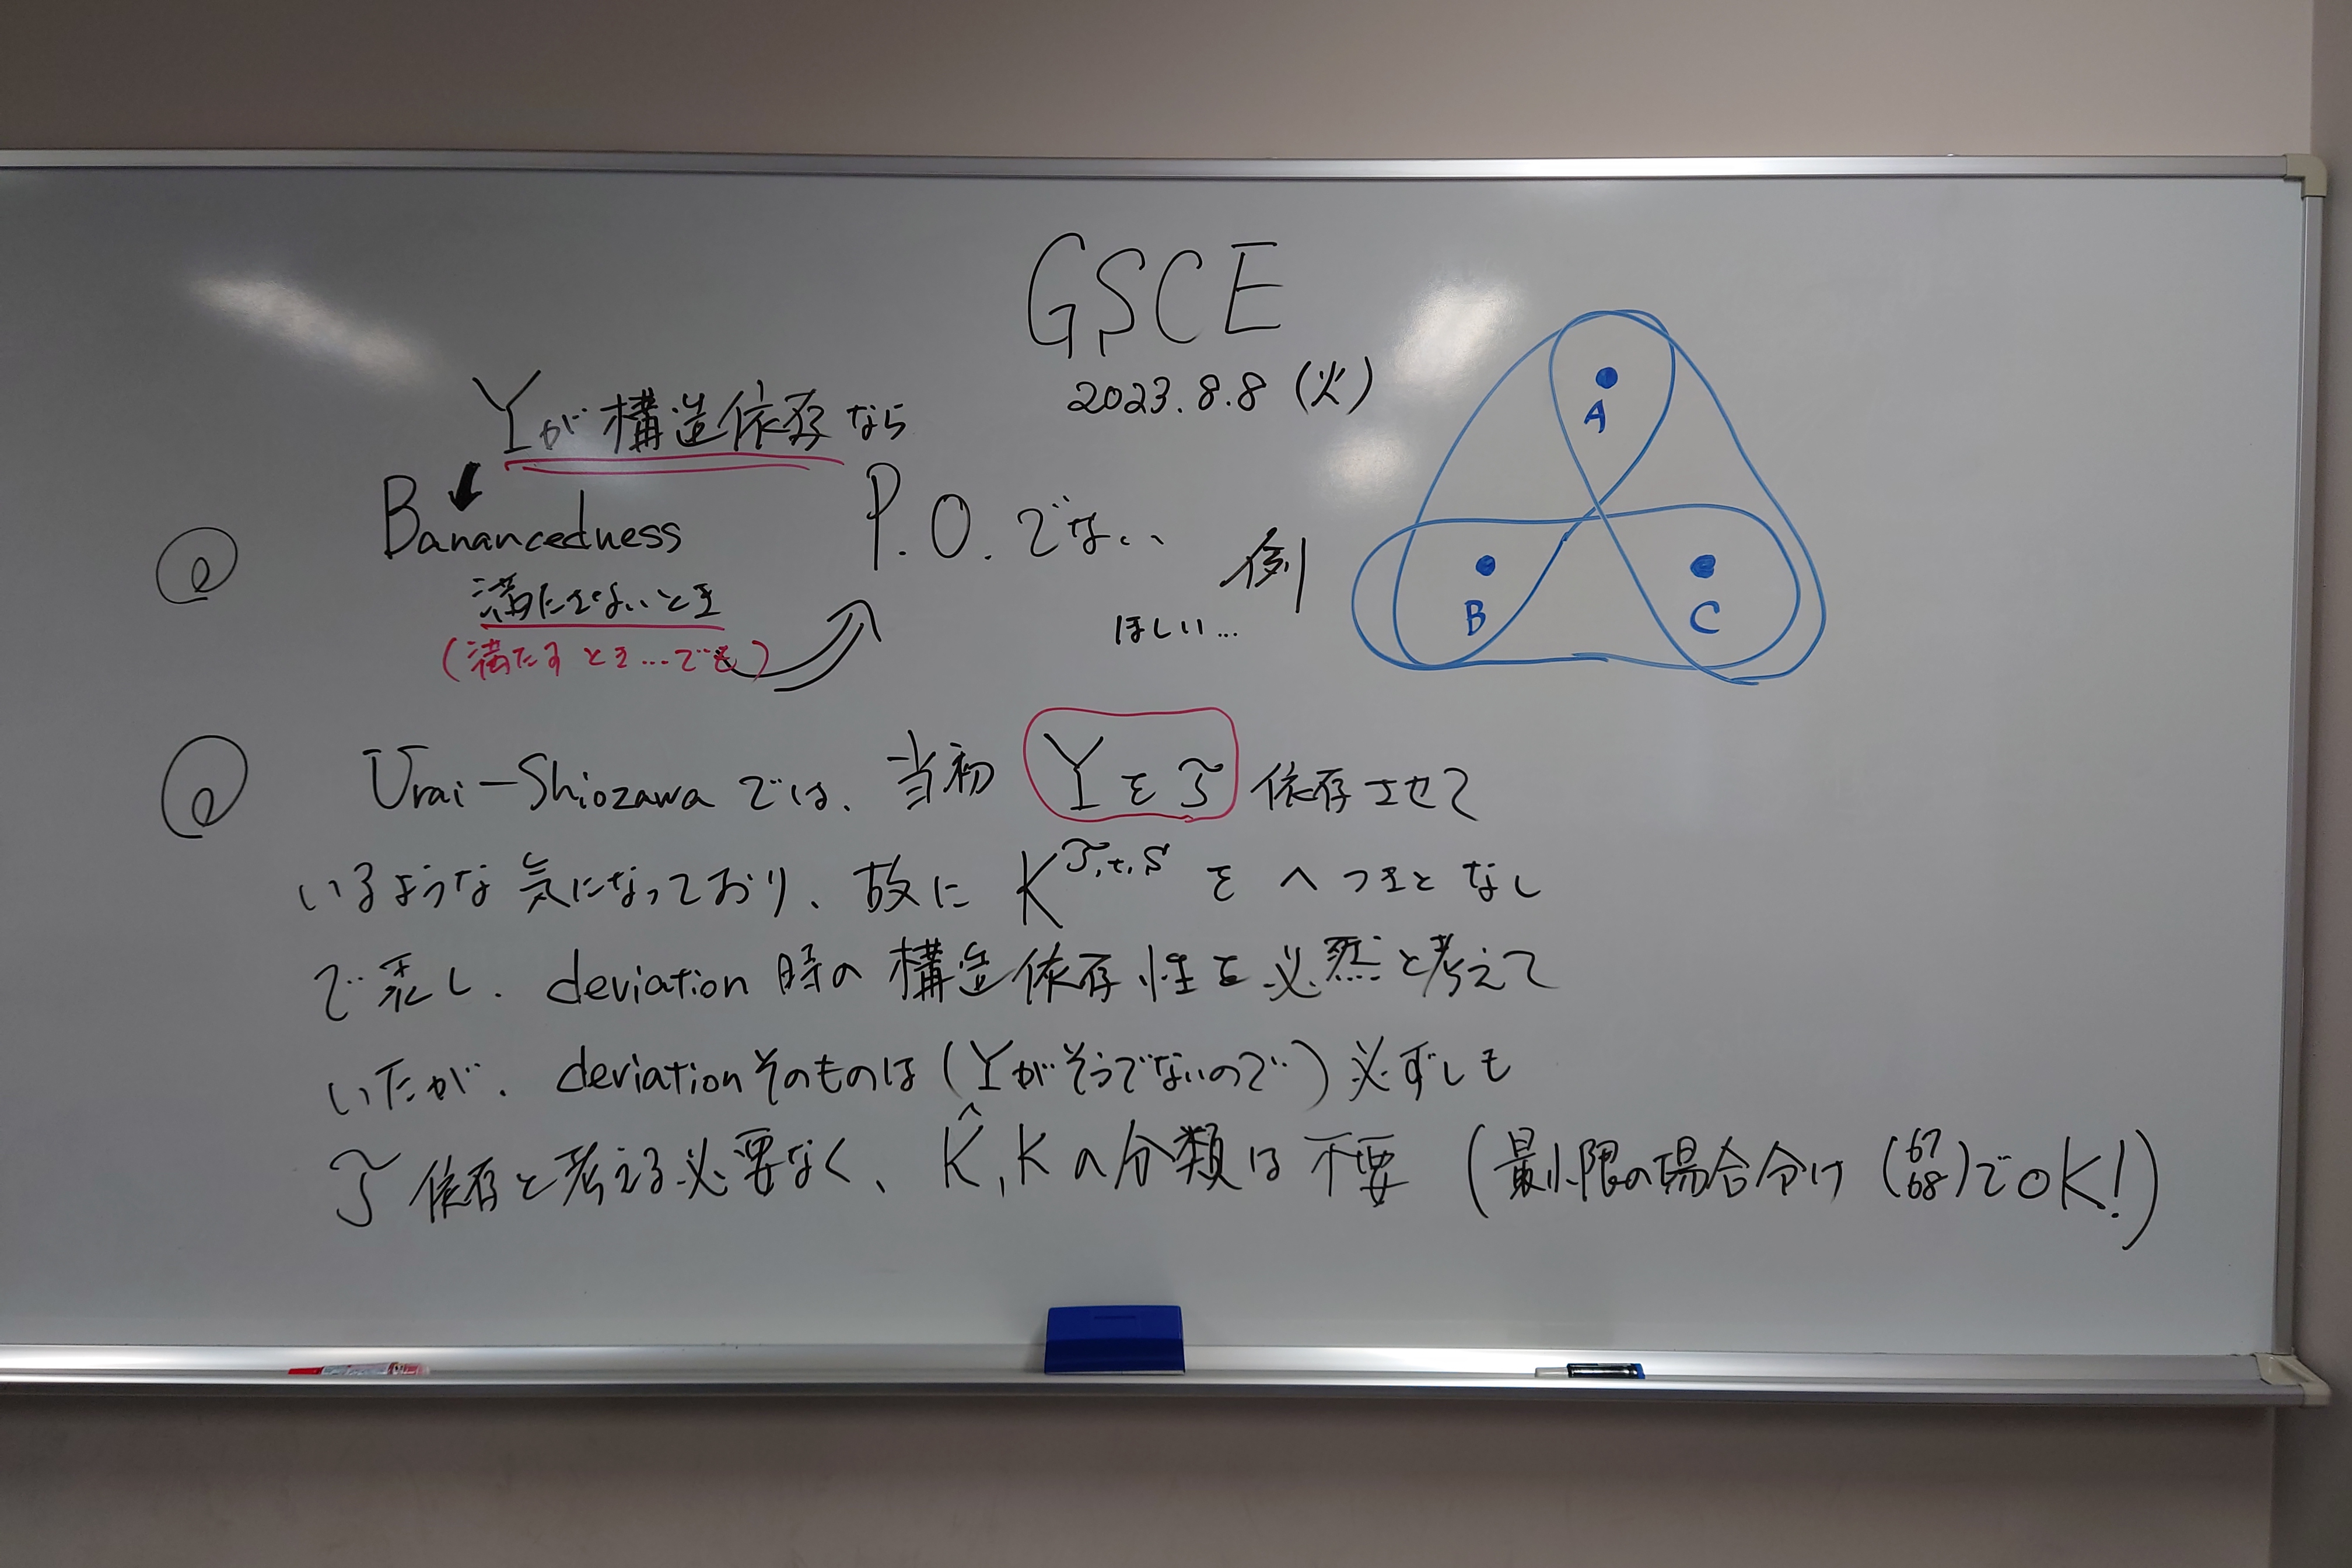 GSCE
2023.8.8 (火)
Yが構造依存なら
Banancedness
P.O.でない
満たさないとき
(満たすとき...でも)
例
ほしい...
A
B
C
Urai-Shiozawa では、当初 Yを𝒯 依存させて
いるような気になっており、故に K^{𝒯,t,S} を ^ つきとなし
で表し、deviation 時の構造依存性を必然と考えて
いたが、deviationそのものは (Yがそうでないので) 必ずしも
𝒯 依存と考える必要なく、K̂, K の分類は不要 (最小限の場合分け (67 68)でOK!)